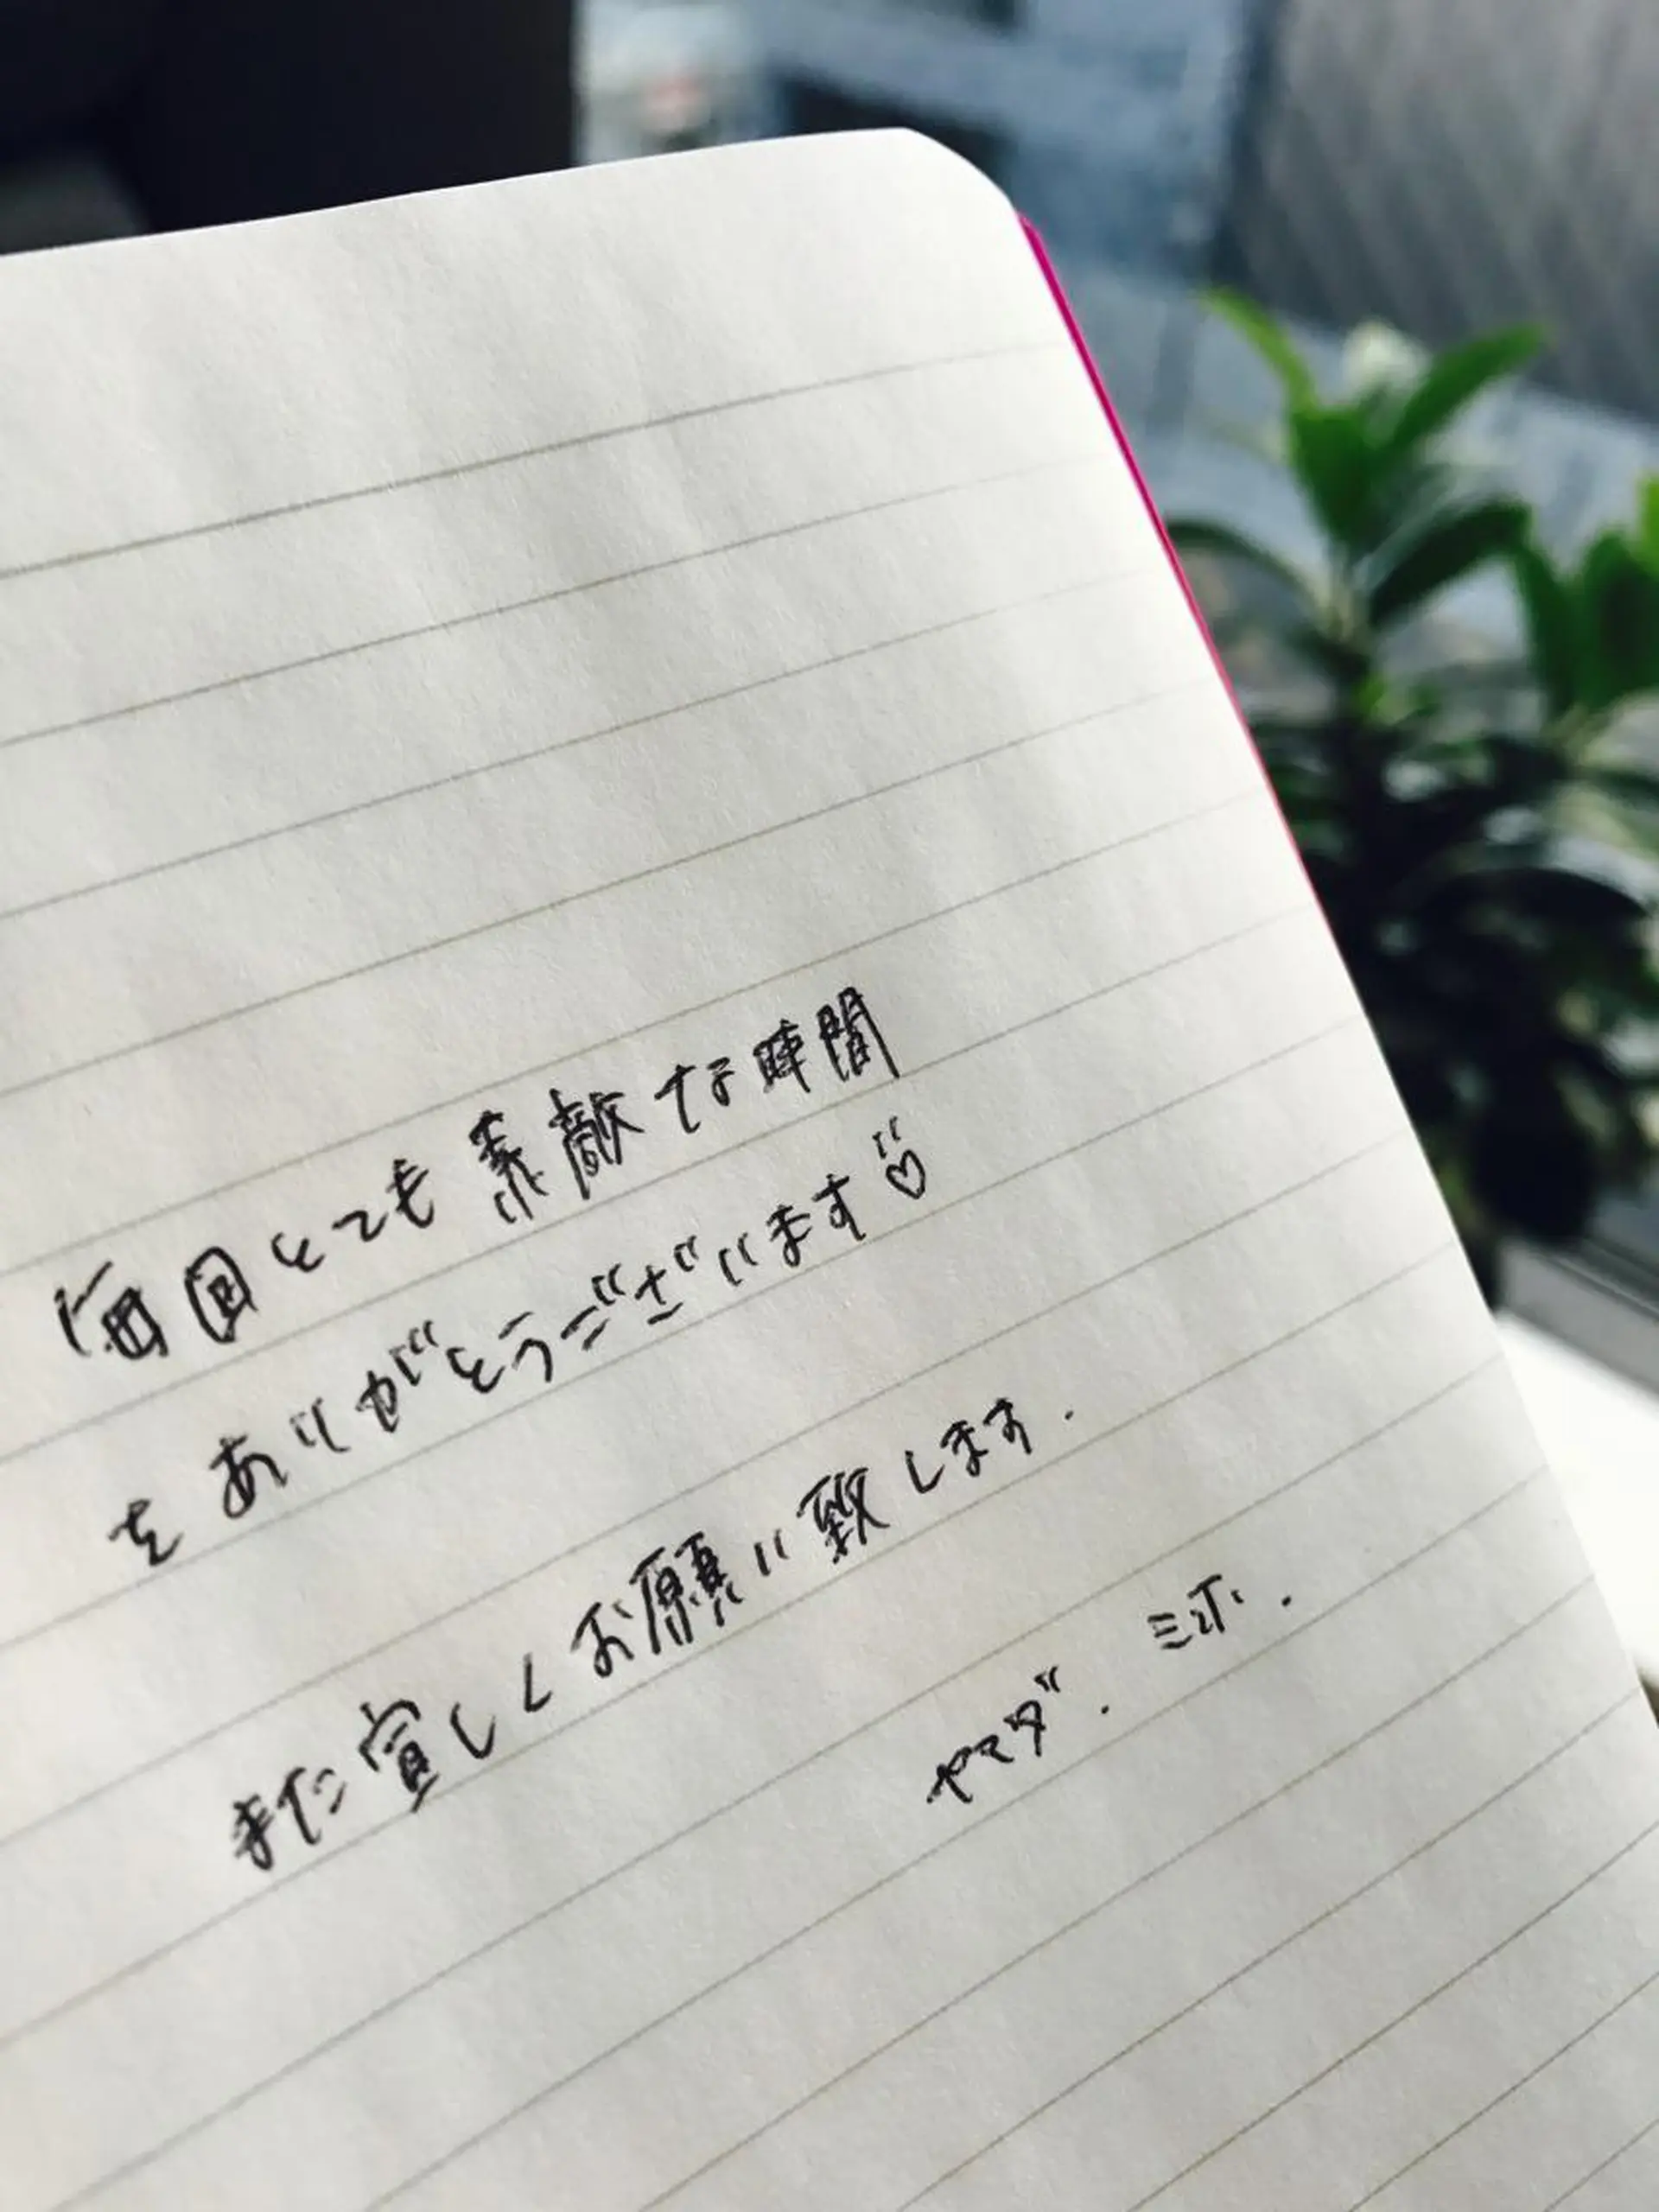 毎回とても素敵な時間
をありがとうございます♡
また宜しくお願い致します.
ヤマダ. ミホ.